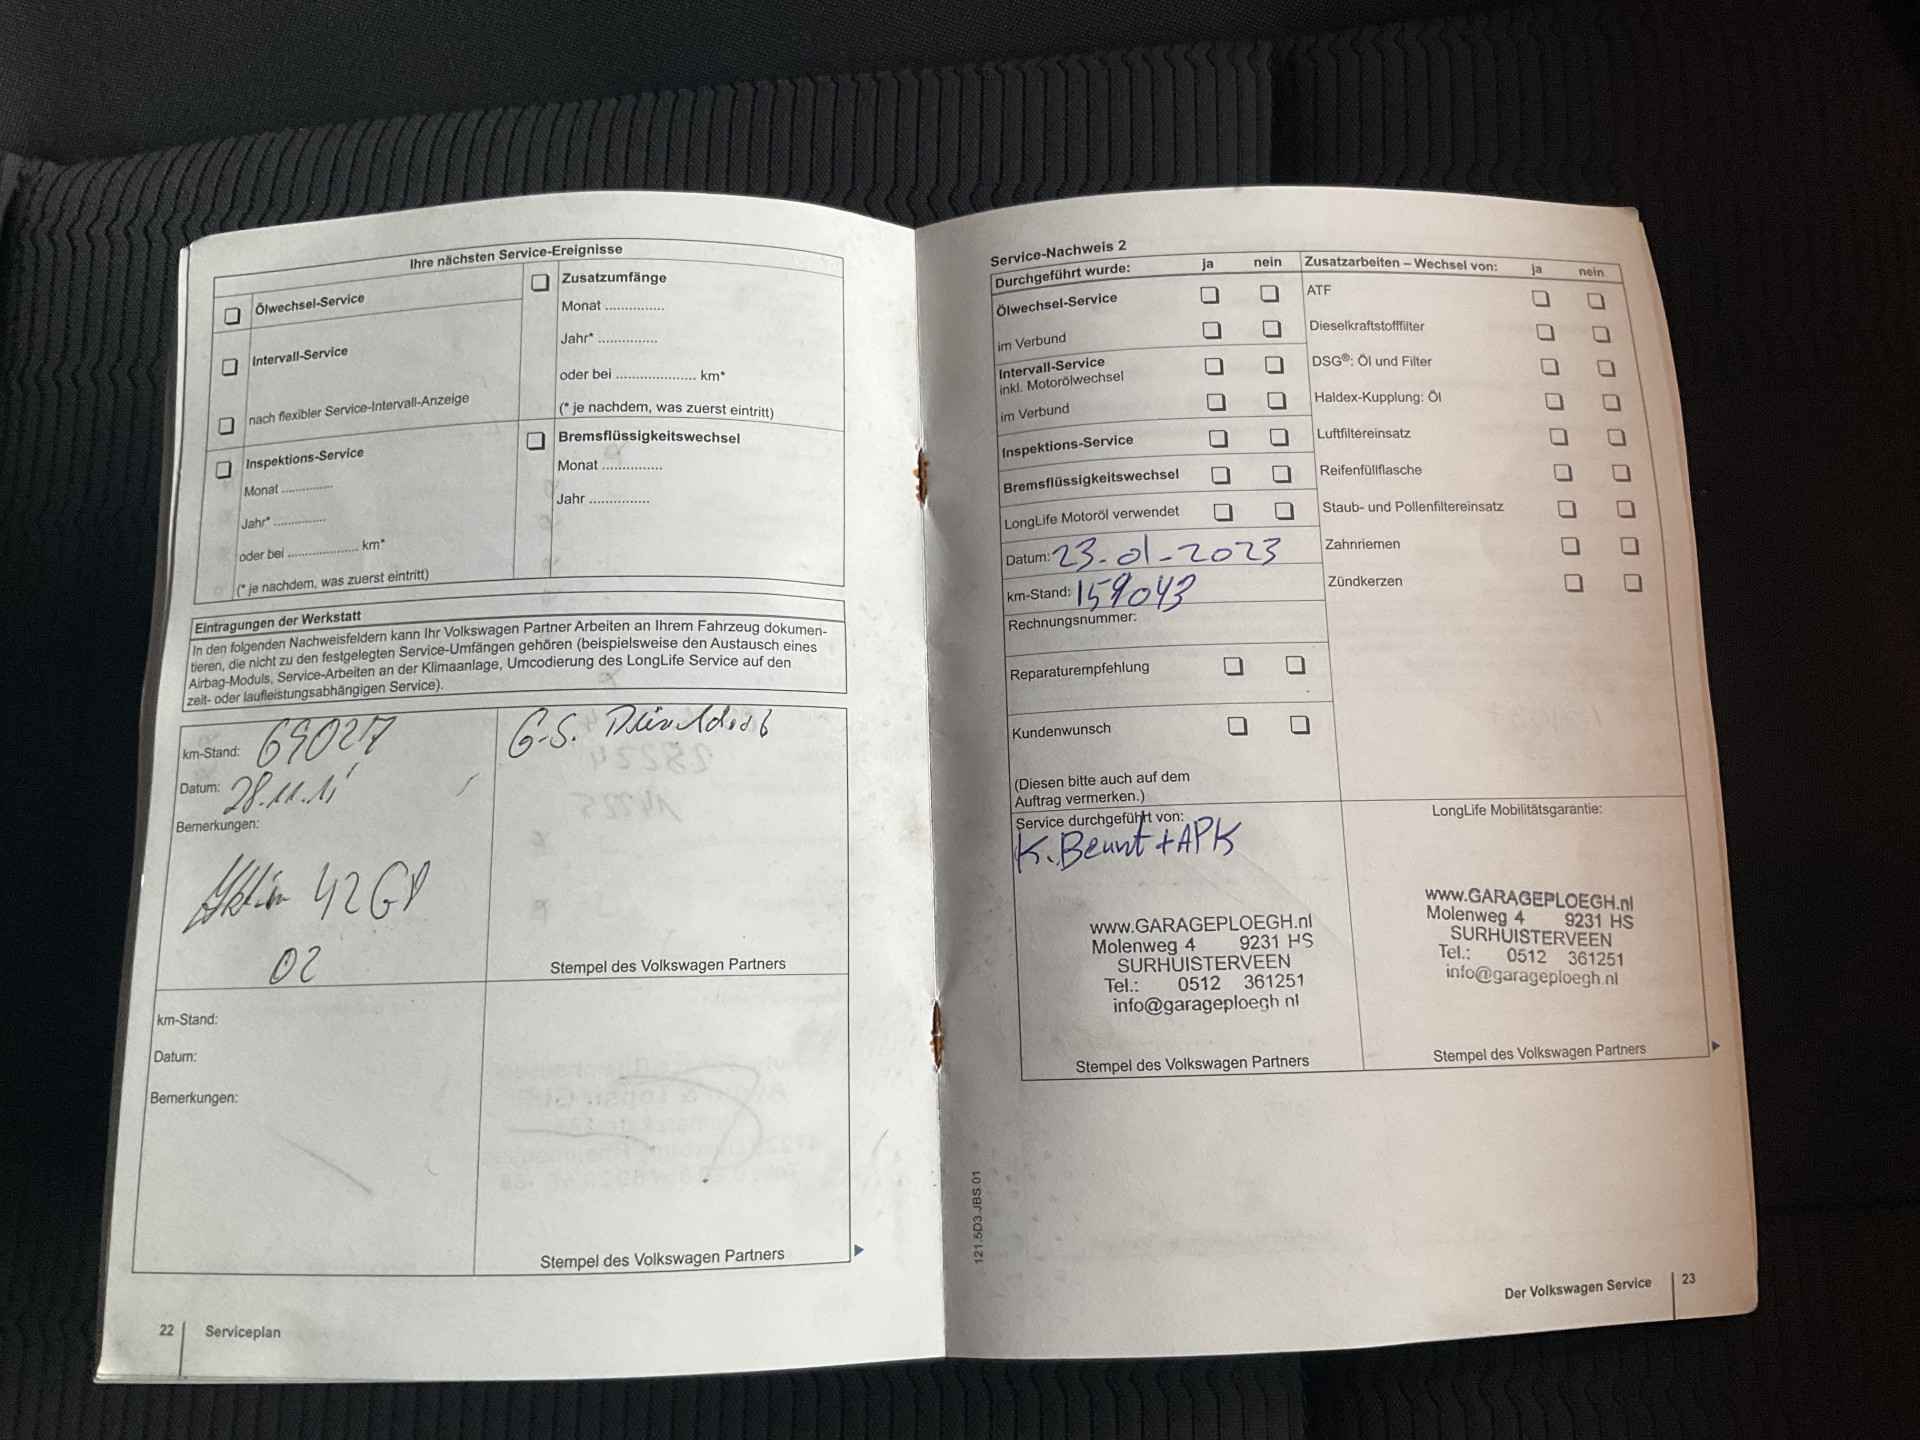 Ihre nächsten Service-Ereignisse
Ölwechsel-Service
Intervall-Service
nach flexibler Service-Intervall-Anzeige
Inspektions-Service
Monat ..............
Jahr* ..............
oder bei ................... km*
(* je nachdem, was zuerst eintritt)
Zusatzumfänge
Monat ...............
Jahr* ...............
oder bei ..................... km*
(* je nachdem, was zuerst eintritt)
Bremsflüssigkeitswechsel
Monat ...............
Jahr ...............
Eintragungen der Werkstatt
In den folgenden Nachweisfeldern kann Ihr Volkswagen Partner Arbeiten an Ihrem Fahrzeug dokumen-
tieren, die nicht zu den festgelegten Service-Umfängen gehören (beispielsweise den Austausch eines
Airbag-Moduls, Service-Arbeiten an der Klimaanlage, Umcodierung des LongLife Service auf den
zeit- oder laufleistungsabhängigen Service).
km-Stand: 69027
Datum: 28.11.11
Bemerkungen:
42G8
02
G.S.
Stempel des Volkswagen Partners
km-Stand:
Datum:
Bemerkungen:
Stempel des Volkswagen Partners
22 Serviceplan
Service-Nachweis 2
Durchgeführt wurde: ja nein
Ölwechsel-Service
im Verbund
Intervall-Service
inkl. Motorölwechsel
im Verbund
Inspektions-Service
Bremsflüssigkeitswechsel
LongLife Motoröl verwendet
Datum: 23-01-2023
km-Stand: 159043
Rechnungsnummer:
Reparaturempfehlung
Kundenwunsch
(Diesen bitte auch auf dem
Auftrag vermerken.)
Zusatzarbeiten – Wechsel von: ja nein
ATF
Dieselkraftstofffilter
DSG®: Öl und Filter
Haldex-Kupplung: Öl
Luftfiltereinsatz
Reifenfüllflasche
Staub- und Pollenfiltereinsatz
Zahnriemen
Zündkerzen
Service durchgeführt von:
K. Beurt + APK
www.GARAGEPLOEGH.nl
Molenweg 4 9231 HS
SURHUISTERVEEN
Tel.: 0512 361251
info@garageploegh.nl
Stempel des Volkswagen Partners
LongLife Mobilitätsgarantie:
www.GARAGEPLOEGH.nl
Molenweg 4 9231 HS
SURHUISTERVEEN
Tel.: 0512 361251
info@garageploegh.nl
Stempel des Volkswagen Partners
121.5D3.JBS.01
Der Volkswagen Service 23